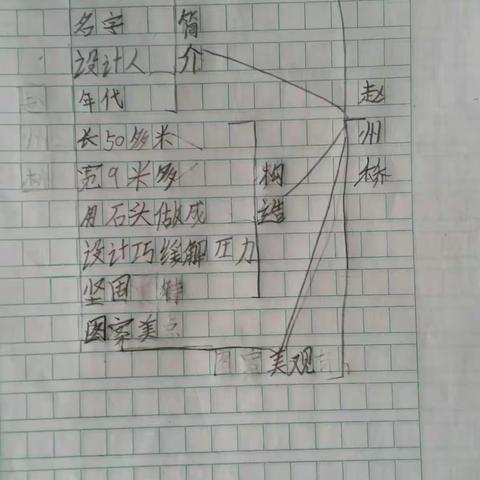 名字
设计人
年代
简介
长50多米
宽9米多
用石头做成
设计巧缓解压力
坚固
构造
图案美
美观
赵州桥